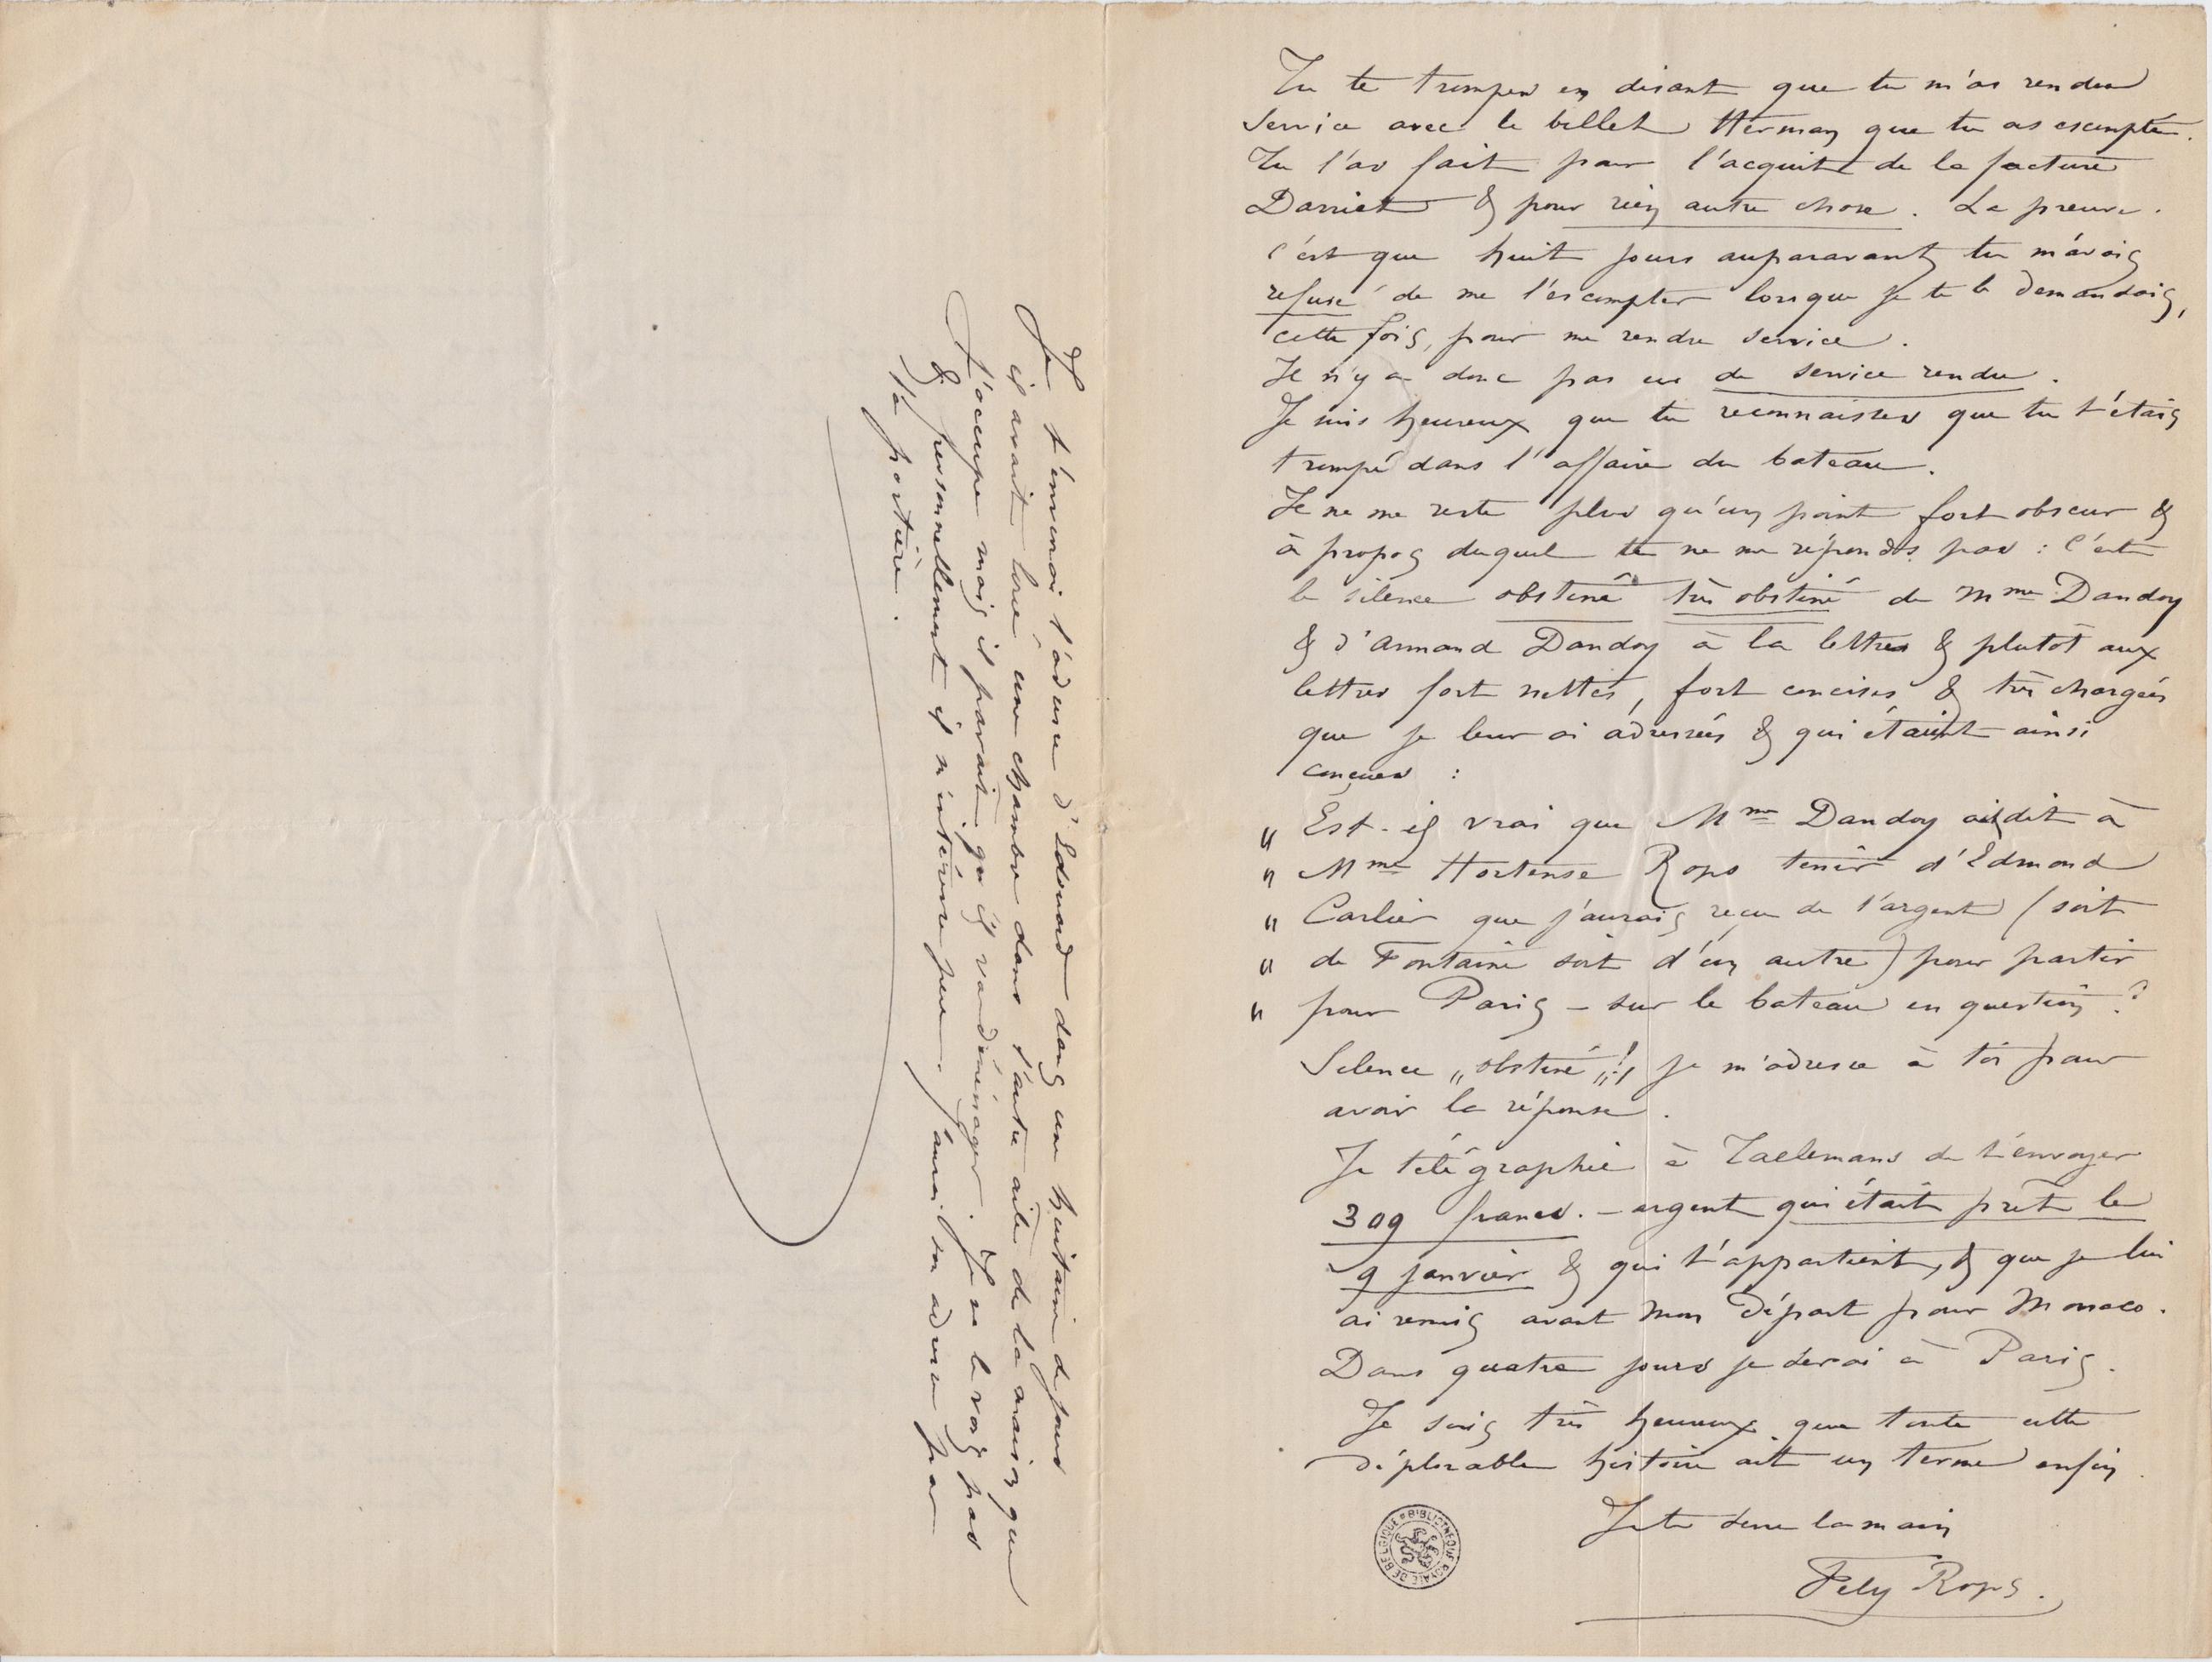 Tu te trompes en disant que tu m'as rendu
service avec le billet Herman que tu as escompté.
Tu l'as fait pour l'acquit de la facture
& pour rien autre chose. La preuve.
c'est que huit jours auparavant tu m'avais
refusé de me l'escompter lorsque je te le demandais,
cette fois, pour me rendre service.
Il n'y a donc pas eu de service rendu.
Je suis heureux que tu reconnaisses que tu t'étais
trompé dans l'affaire du bateau.
Il ne me reste plus qu'un point fort obscur &
à propos duquel tu ne me réponds pas : c'est
le silence obstiné très obstiné de Mme Dandoy
& d'Armand Dandoy à la lettre & plutôt aux
lettres fort nettes, fort concises & très chargées
que je leur ai adressées & qui étaient ainsi
conçues :
„ Est-il vrai que Mme Dandoy ait dit à
„ Mme Hortense Rops tenir d'Edmond
„ Carlier que j'aurais reçu de l'argent (soit
„ de Fontaine soit d'un autre) pour partir
„ pour Paris – sur le bateau en question ?
Silence „obstiné„!, je m'adresse à toi pour
avoir la réponse.
Je télégraphie à Taelemans de t'envoyer
309 francs. – argent qui était prêt le
9 janvier & qui t'appartient, & que je lui
ai remis avant mon départ pour Monaco.
Dans quatre jours je serai à Paris.
Je suis très heureux que toute cette
déplorable histoire ait un terme enfin.
Je te serre la main
Fély Rops.
BIBLIOTHEQUE ROYALE DE BELGIQUE
Je t'enverrai l'adresse d'Edouard dans une huitaine de jours
il avait loué une chambre dans l'autre aile de la maison que
j'occupe mais il paraît qu'il va déménager. Je ne le vois pas
& personnellement il m'intéresse peu. J'aurai son adresse par
la portière.